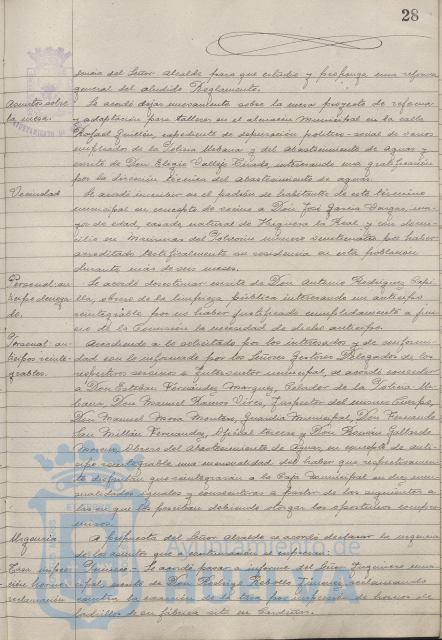 28
dencia del Señor Alcalde para que estudie y proponga una reforma
general del aludido Reglamento.
Asuntos sobre
la mesa.
Se acordó dejar nuevamente sobre la mesa proyecto de reforma
y adaptación para talleres en el almacén municipal en la calle
Rafael Guillén, expediente de depuración político-social de varios
empleados de la Policía Urbana y del abastecimiento de aguas y
escrito de Don Eligio Vallejo Tirado interesando una gratificación
por la dirección técnica del abastecimiento de aguas.
Vecindad
Se acordó inscribir en el padrón de habitantes de este término
municipal en concepto de vecino a Don José García Vargas, ma-
yor de edad, casado natural de Higuera la Real y con domi-
cilio en Marismas del Polvorín número veinticuatro por haber
acreditado testificalmente su residencia en esta población
durante más de seis meses.
Personal: an-
ticipo denega-
do.
Se acordó desestimar escrito de Don Antonio Rodríguez Capi-
lla, obrero de la limpieza pública interesando un anticipo
reintegrable por no haber justificado cumplidamente a jui-
cio de la Comisión la necesidad de dicho anticipo.
Personal: an-
ticipos reinte-
grables.
Accediendo a lo solicitado por los interesados y de conformi-
dad con lo informado por los Señores Gestores Delegados de los
respectivos servicios e Interventor municipal, se acordó conceder
a Don Esteban Fernández Márquez, Celador de la Policía Ur-
bana, Don Manuel Ramos Vives, Inspector del mismo Cuerpo,
Don Manuel Mora Montero, Guardia Municipal, Don Fernando
San Millán Fernández, Oficial tercero y Don Román Gallardo
Moreno, Obrero del Abastecimiento de Aguas, en concepto de anti-
cipo reintegrable una mensualidad del haber que respectivamen-
te disfrutan que reintegrarán a la Caja municipal en diez men-
sualidades iguales y consecutivas a partir de las siguientes a
las en que las perciban debiendo otorgar los oportunos compro-
misos.
Urgencia.
A propuesta del Señor Alcalde se acordó declarar la urgencia
de los escritos que a continuación se expresan:
Se acordó pasar a informe del Señor Ingeniero muni-
cipal, escrito de Don Rodrigo Rebollo Jiménez, reclamando
reclamación
contra la exacción de la tasa por inspección de hornos de
ladrillos de su fábrica sita en Cardeñas.
Ayuntamiento de